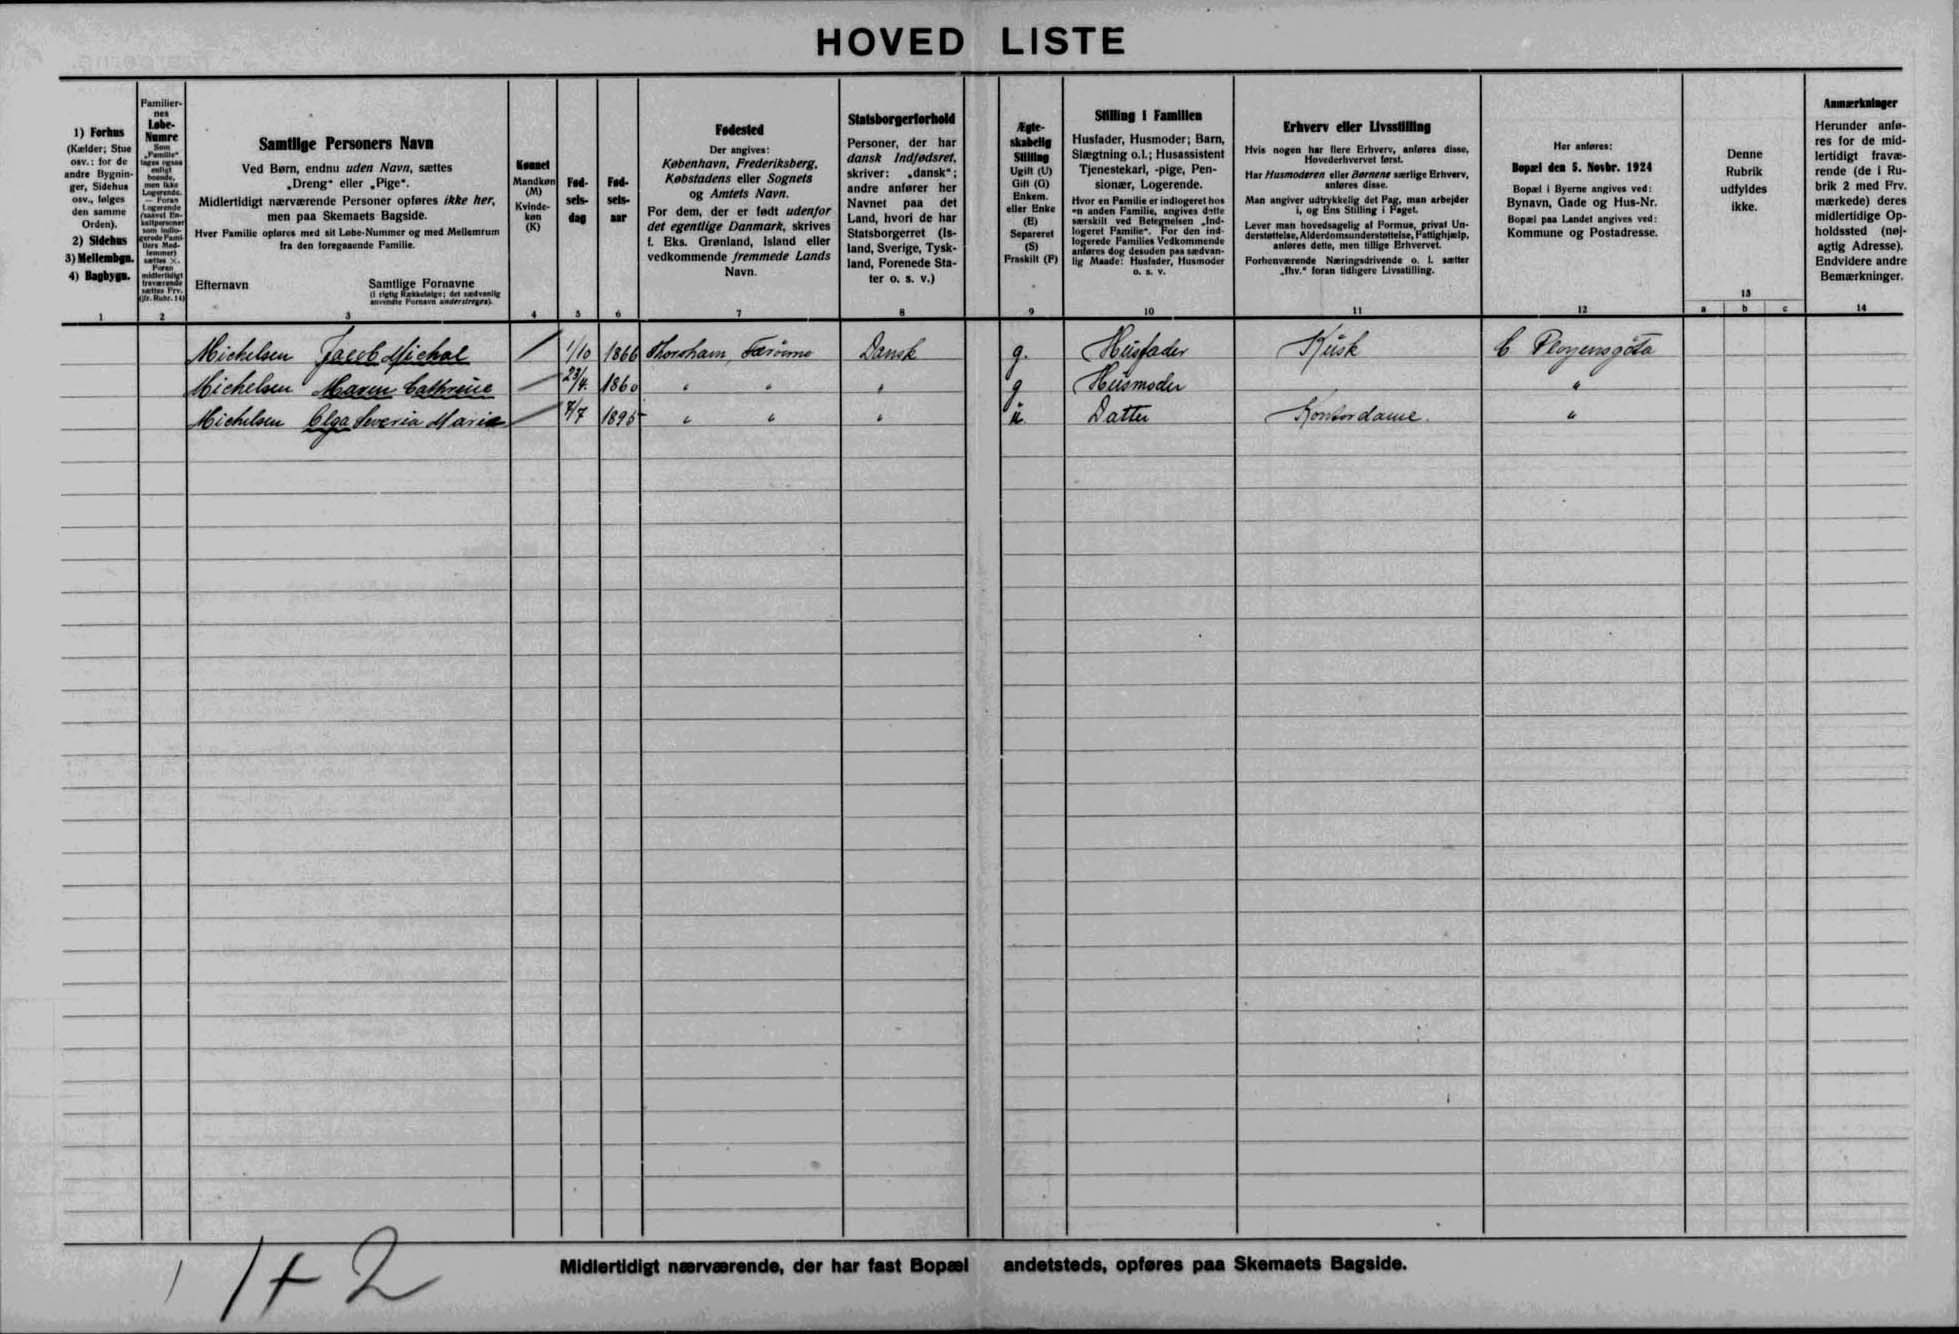 HOVED LISTE
1) Forhus
(Kælder; Stue
osv.: for de
andre Bygnin-
ger, Sidehus
osv., følges
den samme
Orden).
2) Sidehus
3) Mellembgn.
4) Bagbygn.
1
Familier-
nes
Løbe-
Numre
Som
„Familie“
tages ogsaa
enligt
boende,
men ikke
Logerende.
— Foran
Logerende
(saavel En-
keltpersoner
som indlo-
gerede Fami-
liers Med-
lemmer)
sættes ×.
Foran
midlertidigt
fraværende
sættes Frv.
(jfr. Rubr. 14)
2
Samtlige Personers Navn
Ved Børn, endnu uden Navn, sættes
„Dreng“ eller „Pige“.
Midlertidigt nærværende Personer opføres ikke her,
men paa Skemaets Bagside.
Hver Familie opføres med sit Løbe-Nummer og med Mellemrum
fra den foregaaende Familie.
Efternavn Samtlige Fornavne
(i rigtig Rækkefølge; det sædvanlig
anvendte Fornavn understreges).
3
Kønnet
Mandkøn
(M)
Kvinde-
køn
(K)
4
Fød-
sels-
dag
5
Fød-
sels-
aar
6
Fødested
Der angives:
København, Frederiksberg,
Købstadens eller Sognets
og Amtets Navn.
For dem, der er født udenfor
det egentlige Danmark, skrives
f. Eks. Grønland, Island eller
vedkommende fremmede Lands
Navn.
7
Statsborgerforhold
Personer, der har
dansk Indfødsret,
skriver: „dansk“;
andre anfører her
Navnet paa det
Land, hvori de har
Statsborgerret (Is-
land, Sverige, Tysk-
land, Forenede Sta-
ter o. s. v.)
8
Ægte-
skabelig
Stilling
Ugift (U)
Gift (G)
Enkem.
eller Enke
(E)
Separeret
(S)
Fraskilt (F)
9
Stilling i Familien
Husfader, Husmoder; Barn,
Slægtning o.l.; Husassistent
Tjenestekarl, -pige, Pen-
sionær, Logerende.
Hvor en Familie er indlogeret hos
en anden Familie, angives dette
særskilt ved Betegnelsen „Ind-
logeret Familie“. For den ind-
logerede Families Vedkommende
anføres dog desuden paa sædvan-
lig Maade: Husfader, Husmoder
o. s. v.
10
Erhverv eller Livsstilling
Hvis nogen har flere Erhverv, anføres disse,
Hovederhvervet først.
Har Husmoderen eller Børnene særlige Erhverv,
anføres disse.
Man angiver udtrykkelig det Fag, man arbejder
i, og Ens Stilling i Faget.
Lever man hovedsagelig af Formue, privat Un-
derstøttelse, Alderdomsunderstøttelse, Fattighjælp,
anføres dette, men tillige Erhvervet.
Forhenværende Næringsdrivende o. l. sætter
„fhv.“ foran tidligere Livsstilling.
11
Her anføres:
Bopæl den 5. Novbr. 1924
Bopæl i Byerne angives ved:
Bynavn, Gade og Hus-Nr.
Bopæl paa Landet angives ved:
Kommune og Postadresse.
12
Denne
Rubrik
udfyldes
ikke.
13
a b c
Anmærkninger
Herunder anfø-
res for de mid-
lertidigt fravæ-
rende (de i Ru-
brik 2 med Frv.
mærkede) deres
midlertidige Op-
holdssted (nøj-
agtig Adresse).
Endvidere andre
Bemærkninger.
14
Michelsen Jacob Michal / 1/10 1866 Thorshavn Færöerne Dansk g. Husfader Kusk C Ployensgöta
Michelsen Maren Cathrine — 23/4. 1860 " " " g Husmoder "
Michelsen Olga Severia Marie — 7/7 1895 " " " u. Datter Kontordame. "
Midlertidigt nærværende, der har fast Bopæl andetsteds, opføres paa Skemaets Bagside.
1+2